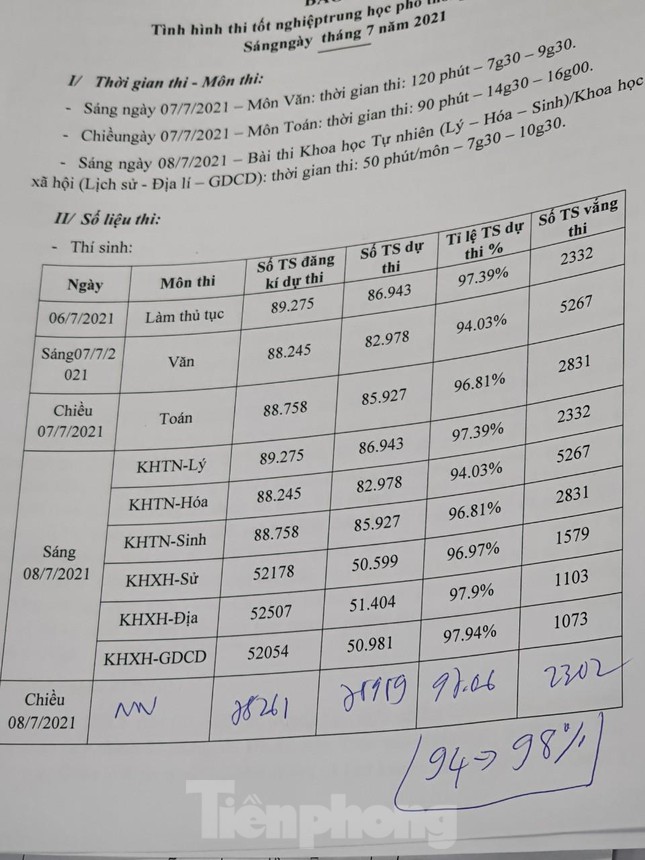 Tình hình thi tốt nghiệptrung học phổ
Sángngày tháng 7 năm 2021
I/ Thời gian thi - Môn thi:
- Sáng ngày 07/7/2021 – Môn Văn: thời gian thi: 120 phút – 7g30 – 9g30.
- Chiềungày 07/7/2021 – Môn Toán: thời gian thi: 90 phút – 14g30 – 16g00.
- Sáng ngày 08/7/2021 – Bài thi Khoa học Tự nhiên (Lý – Hóa – Sinh)/Khoa học
xã hội (Lịch sử - Địa lí – GDCD): thời gian thi: 50 phút/môn – 7g30 – 10g30.
II/ Số liệu thi:
- Thí sinh:
Ngày Môn thi Số TS đăng kí dự thi Số TS dự thi Tỉ lệ TS dự thi % Số TS vắng thi
06/7/2021 Làm thủ tục 89.275 86.943 97.39% 2332
Sáng07/7/2021 Văn 88.245 82.978 94.03% 5267
Chiều 07/7/2021 Toán 88.758 85.927 96.81% 2831
Sáng 08/7/2021 KHTN-Lý 89.275 86.943 97.39% 2332
KHTN-Hóa 88.245 82.978 94.03% 5267
KHTN-Sinh 88.758 85.927 96.81% 2831
KHXH-Sử 52178 50.599 96.97% 1579
KHXH-Địa 52507 51.404 97.9% 1103
KHXH-GDCD 52054 50.981 97.94% 1073
Chiều 08/7/2021 NN 2302
94 → 98%
Tiềnphong